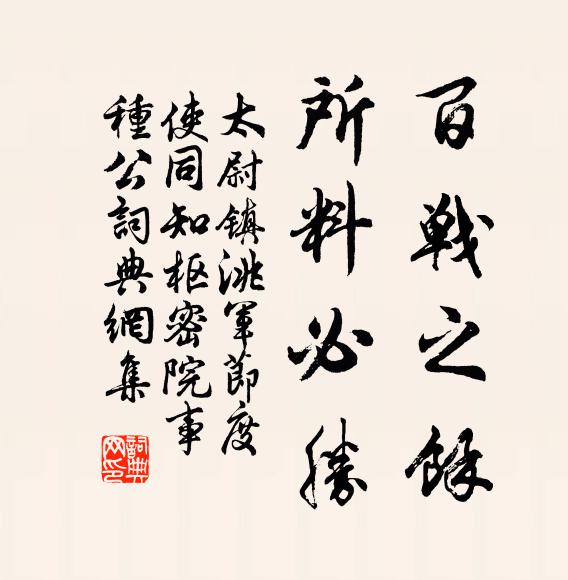 百戰之餘
所料必勝
太尉镇洮軍節度
使同知枢密院事
種公詞典網集
詞典网印